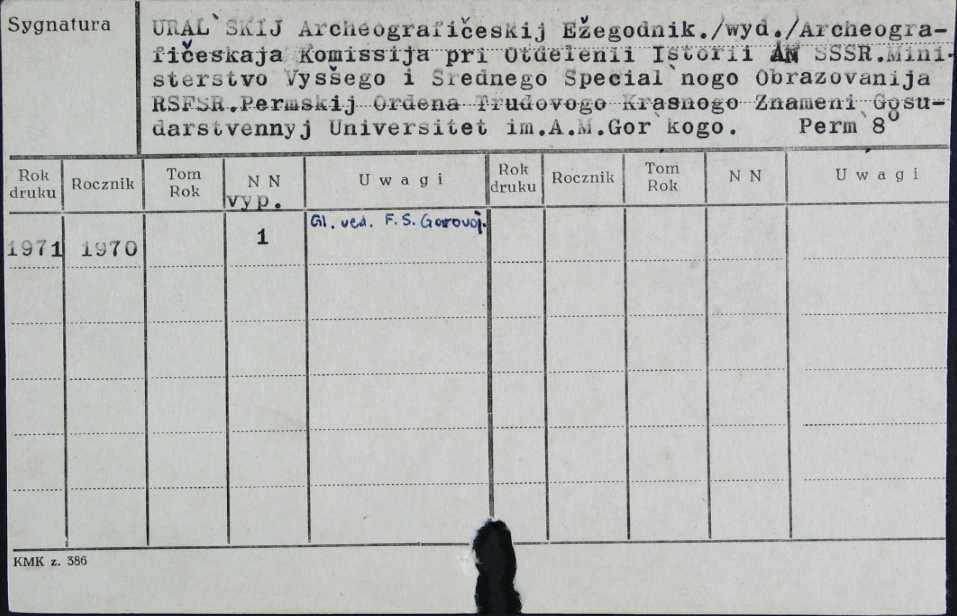 Sygnatura
URAL`SKIJ Archeografičeskij Ežegodnik./wyd./Archeogra-
fičeskaja Komissija pri Otdelenii Istorii AN SSSR.Mini-
sterstvo Vysšego i Srednego Special`nogo Obrazovanija
RSFSR.Permskij Ordena Trudovogo Krasnogo Znameni Gosu-
darstvennyj Universitet im.A.M.Gor`kogo. Perm` 8°
Rok druku Rocznik Tom Rok N N U w a g i Rok druku Rocznik Tom Rok N N U w a g i
vyp.
1971 1970 1 Gl. red. F. S. Gorovoj.
KMK z. 386